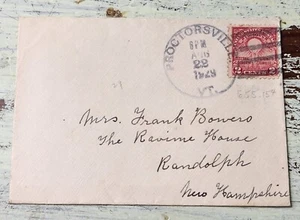 PROCTORSVILLE
6PM
AUG
22
1929
VT.
2 CENTS 2
Mrs. Frank Bowers
The Ravine House
Randolph
New Hampshire